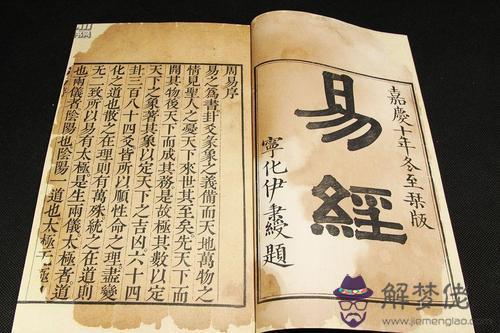 嘉慶十年冬至栞版
易經
寧化伊秉綬題
周易序
易之爲書卦爻彖象之義備而天地萬物之
情見聖人之憂天下來世其至矣先天下而
開其物後天下而成其務是故極其數以定
天下之象著其象以定天下之吉凶六十四
卦三百八十四爻皆所以順性命之理盡變
化之道也散之在理則有萬殊統之在道則
无二致所以易有太極是生兩儀太極者道
也兩儀者陰陽也陰陽一道也太極无極
解梦佬
www.jiemenglao.com